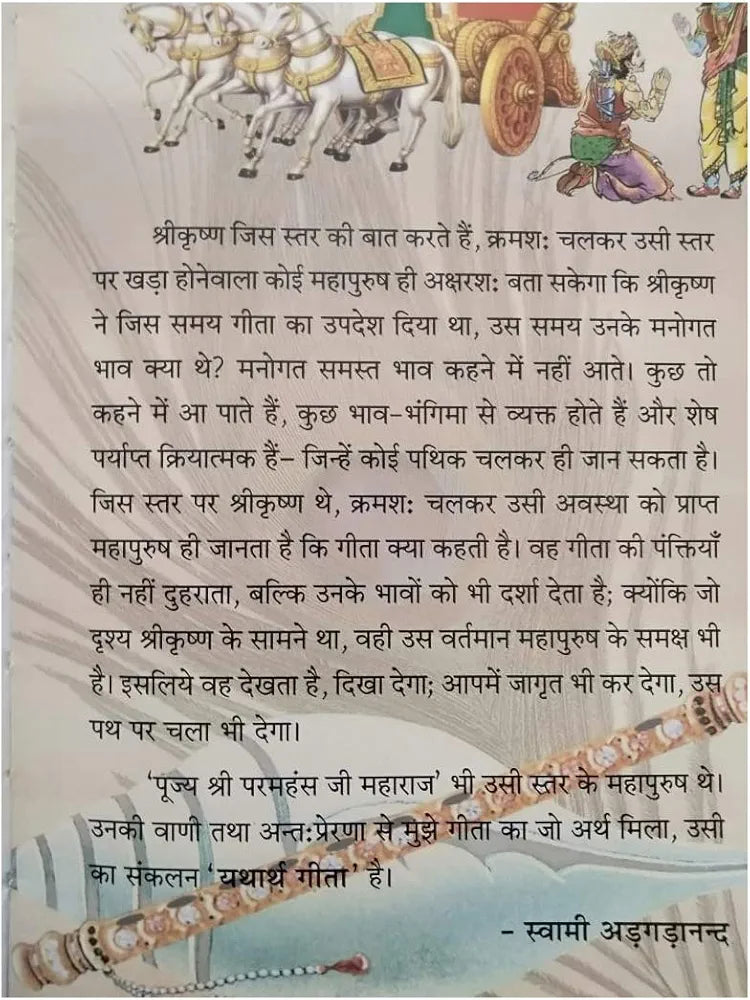 श्रीकृष्ण जिस स्तर की बात करते हैं, क्रमशः चलकर उसी स्तर
पर खड़ा होनेवाला कोई महापुरुष ही अक्षरशः बता सकेगा कि श्रीकृष्ण
ने जिस समय गीता का उपदेश दिया था, उस समय उनके मनोगत
भाव क्या थे? मनोगत समस्त भाव कहने में नहीं आते। कुछ तो
कहने में आ पाते हैं, कुछ भाव-भंगिमा से व्यक्त होते हैं और शेष
पर्याप्त क्रियात्मक हैं– जिन्हें कोई पथिक चलकर ही जान सकता है।
जिस स्तर पर श्रीकृष्ण थे, क्रमशः चलकर उसी अवस्था को प्राप्त
महापुरुष ही जानता है कि गीता क्या कहती है। वह गीता की पंक्तियाँ
ही नहीं दुहराता, बल्कि उनके भावों को भी दर्शा देता है; क्योंकि जो
दृश्य श्रीकृष्ण के सामने था, वही उस वर्तमान महापुरुष के समक्ष भी
है। इसलिये वह देखता है, दिखा देगा; आपमें जागृत भी कर देगा, उस
पथ पर चला भी देगा।
‘पूज्य श्री परमहंस जी महाराज’ भी उसी स्तर के महापुरुष थे।
उनकी वाणी तथा अन्तःप्रेरणा से मुझे गीता का जो अर्थ मिला, उसी
का संकलन ‘यथार्थ गीता’ है।
– स्वामी अड़गड़ानन्द